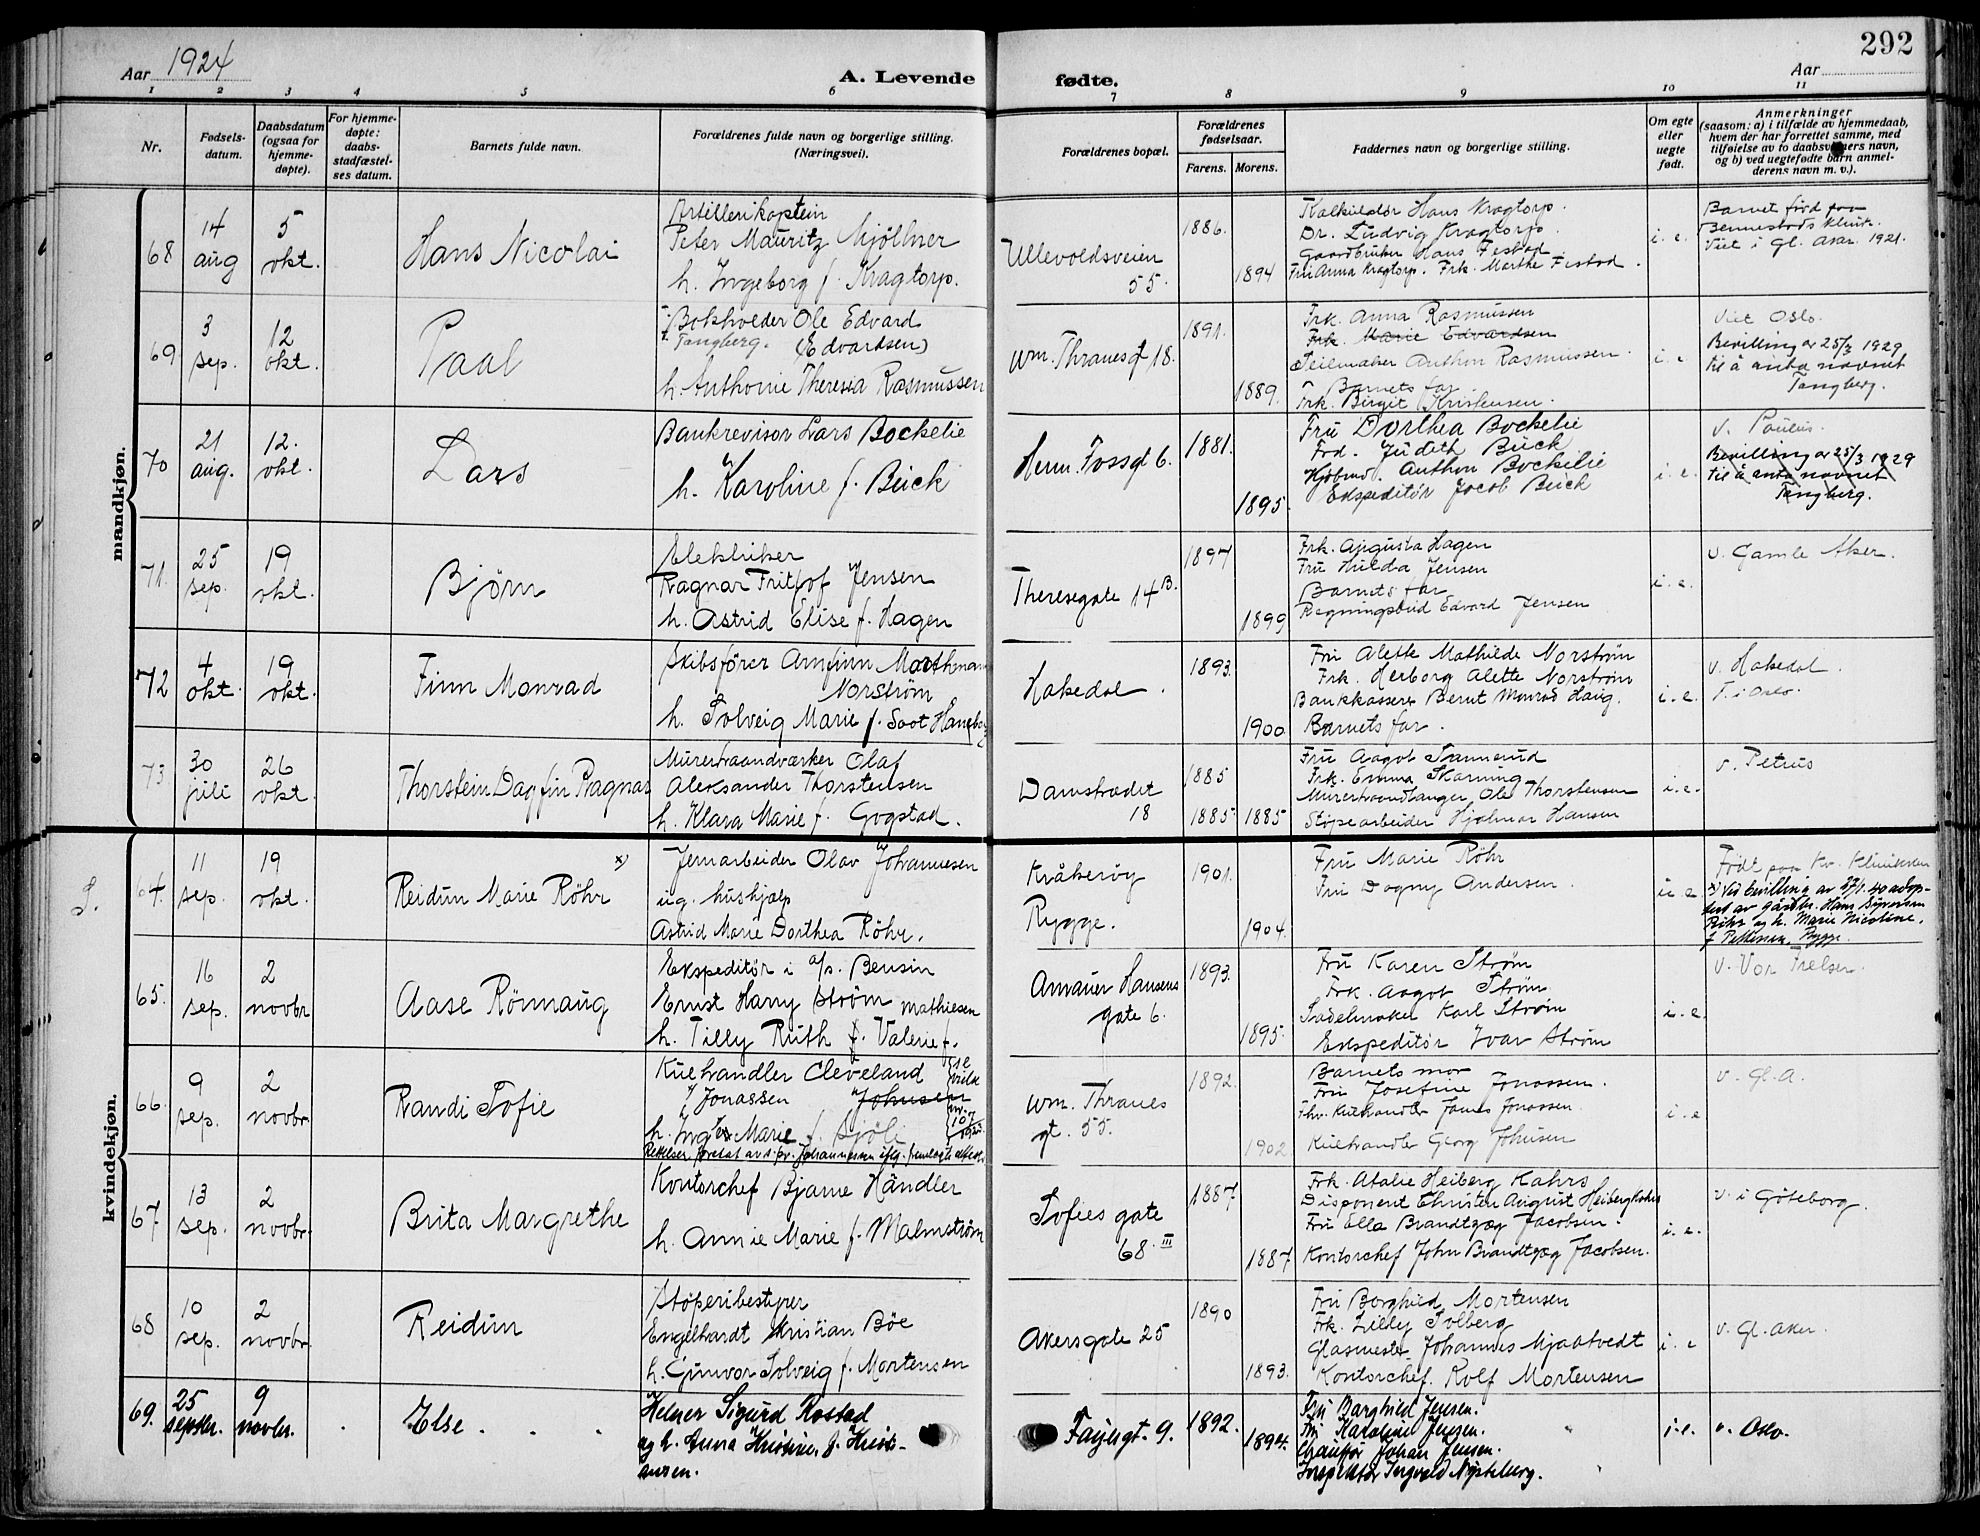 292
Aar 1924
A. Levende fødte.
Aar
1 2 3 4 5 6 7 8 9 10 11
Nr.
Fødsels-
datum.
Daabsdatum
(ogsaa for
hjemme-
døpte).
For hjemme-
døpte:
daabs-
stadfæstel-
ses datum.
Barnets fulde navn.
Forældrenes fulde navn og borgerlige stilling.
(Næringsvei).
Forældrenes bopæl.
Forældrenes
fødselsaar.
Farens. Morens.
Faddernes navn og borgerlige stilling.
Om egte
eller
uegte
født.
Anmerkninger
(saasom: a) i tilfælde av hjemmedaab,
hvem der har forrettet samme, med
tilføielse av to daabsvidners navn,
og b) ved uegtefødte barn anmel-
derens navn m. v.).
mandkjøn.
68
14
aug
5
okt.
Hans Nicolai
Artillerikaptein
Peter Mauritz Mjöllner
h. Ingeborg f. Kragtorp.
Ullevoldsveien
55.
1886.
1894
Hans Kragtorp.
Dr. Ludvig Kragtorp.
Gaardbruker Hans Festad
Fru Anna Kragtorp. Frk. Marthe Festad.
i. e.
Barnet född paa
klinik.
Viet i Gl. Aker. 1921.
69
3
sep.
12
okt.
Paal
Bokholder Ole Edvard
Tangberg. (Edvardsen)
h. Anthonie Theresia Rasmussen
Wm. Thranes g 18.
1891.
1889.
Frk. Anna Rasmussen
Frk. Marie Edvardsen
Seilmaker Anthon Rasmussen.
Barnets far.
Frk. Birgit Kristensen.
i. e
Viet Oslo.
Bevilling av 25/3 1929
til å anta navnet
Tangberg.
70
21
aug.
12.
okt.
Lars
Bankrevisor Lars Bockelie
h. Karoline f. Beick
Herm. Fossgt 6.
1881.
1895.
Fru Dorthea Bockelie
Frk. Judith Beick
Anthon Bockelie
Ekspeditör Jacob Beick
i. e.
v. Paulus.
Bevilling av 25/3 1929
til å anta navnet
Tangberg.
71.
25
sep.
19
okt.
Bjørn
Elektriker
Ragnar Fritjof Jensen
h. Astrid Elise f. Hagen
Theresegate 14 B.
1897
1899
Frk. Augusta Hagen
Fru Hilda Jensen
Barnets far
Regningsbud Edvard Jensen
i. e.
v. Gamle Aker.
72
4
okt.
19
okt.
Finn Monrad
Skibsförer Arnfinn
Norström
h. Solveig Marie f. Soot
Hakedal.
1893.
1900
Fru Alette Mathilde Norström
Frk. Herborg Alette Norström
Bankkasserer Bernt Monrad Haug.
Barnets far.
i. e.
v. Hakedal.
73
30
juli
26
okt.
Thorstein Dagfin Ragnar
Murerhaandværker Olaf
Aleksander Thorstensen
h. Klara Marie f. Gogstad.
Damstrædet
18
1885
1885. 1885
Fru Aagot
Frk. Emma Skarning
Murerhaandlanger Ole Thorstensen
Støpearbeider Hjalmar Hansen
i. e.
v. Petrus
kvindekjøn.
64.
11
sep.
19
okt.
Reidun Marie Röhr x)
Jernarbeider Olav Johannesen
ug. hushjelp
Astrid Marie Dorthea Röhr.
Kråkeröy
Rygge.
1901.
1904.
Fru Marie Röhr
Fru Dagny Andersen.
u e
Födt paa Kv. klinikken
x) Ved bevilling av adop-
tert av gårdbr. Hans Syversen
Röhr og h. Marie Nicoline,
f Pettersen, Rygge.
65.
16
sep.
2
novbr
Aase Rönnaug
Ekspeditör i a/s. Bensin
Ernst Harry Ström
h. Tilly Ruth f. Valerie f. Mathiesen
Amauer Hansens
gate 6.
1893.
1895.
Fru Karen Ström
Frk. Aagot Ström
Sadelmaker Karl Ström
Ekspeditör Ivar Ström
i. e.
v. Vor Frelser.
66.
9
sep.
2
novbr.
Randi Sofie
Kulhandler Cleveland
Jonassen Johnsen
h. Inger Marie f. Sjöli
Wm. Thranes
gt. 55.
1892.
1902
Barnets mor
Fru Josefine Jonassen.
Kulhandler James Jonassen.
Kulhandler Georg Johnsen
i. e
v. Gl. A.
67.
13
sep.
2
novbr.
Brita Margrethe
Kontorchef Bjarne Händler
h. Annie Marie f. Malmström
Sofies gate
68. III
1887.
1887
Frk. Atalie Heiberg Kahrs
Disponent Christen August Heiberg Kahrs
Fru Ella Brandtzæg Jacobsen.
Kontorchef John Brandtzæg Jacobsen.
i. e.
v. i Göteborg.
68
10
sep.
2
novbr.
Reidun
Støperibestyrer
Engelhardt Kristian Böe
h. Gunvor Solveig f. Mortensen
Akersgate 25
1890
1893.
Fru Borghild Mortensen
Frk. Lilly Solberg
Glasmester Johannes Mjaatvedt
Kontorchef. Rolf Mortensen
i. e
v. Gl. Aker.
69.
25
septbr.
9
novbr.
Else
Helger Sigurd Rostad
og h. Anna Kristine, f. Kristi-
ansen.
Fayesgt. 9.
1892.
1894.
Fru Borghild Jensen.
Fru Karoline Jensen.
Chauffør Johan Jensen.
Inspektør Ingvald
i. e.
v. Oslo.